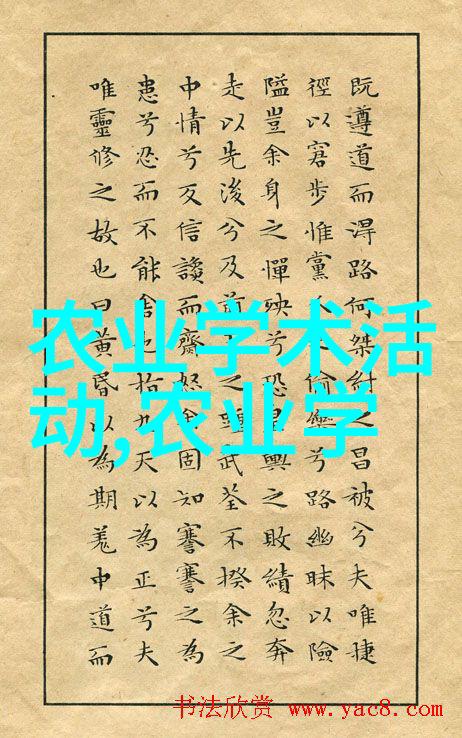 既遵道而得路何桀紂之昌被兮夫唯捷
徑以窘步惟黨人偷樂兮路幽昧以險
隘豈余身之憚殃兮恐皇輿之敗績忽奔
走以先後兮及前之踵武荃不揆余之
中情兮反信讒而齋怒余固知謇謇之為
患兮忍而不能舍也指九天以為正兮夫
唯靈修之故也曰黃昏以為期羌中道而
农业学术活
动,农业学
书法欣赏 www.yac8.com